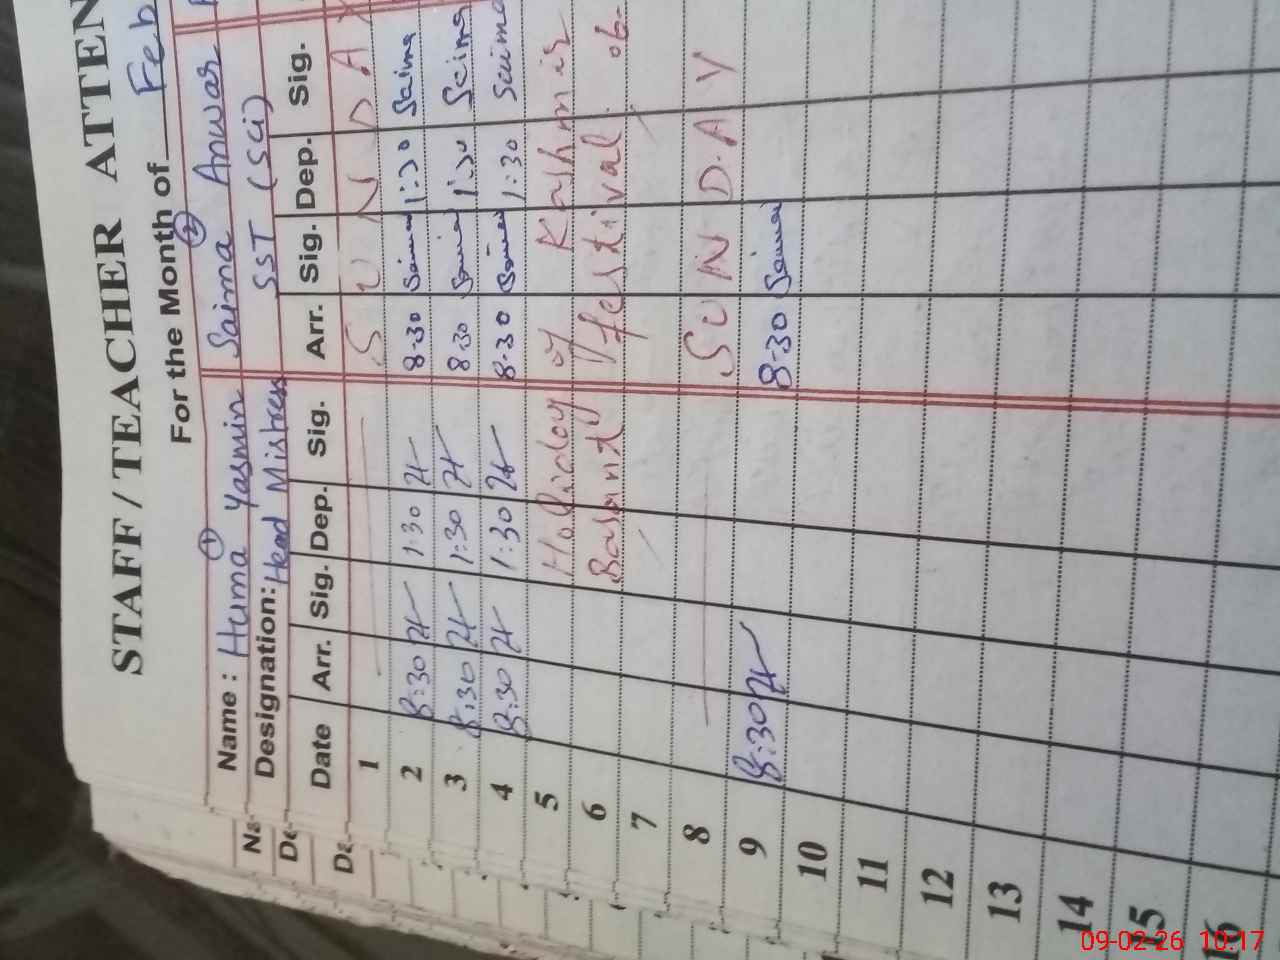 STAFF / TEACHER ATTEN
For the Month of Feb
Name: Huma Yasmin ① Saima Anwar ②
Designation: Head Mistress SST (Sci)
Date Arr. Sig. Dep. Sig. Arr. Sig. Dep. Sig.
1 S U N D A
2 8:30 1:30 8:30 Saima 1:30 Saima
3 8:30 1:30 8:30 Saima 1:30 Saima
4 8:30 1:30 8:30 Saima 1:30 Saima
5 Holiday of Kashmir
6 Basant festival 06-
7
8 S U N D A Y
9 8:30 8:30 Saima
10
11
12
13
14
15
16
Na
De
Da
09-02-26 10:17